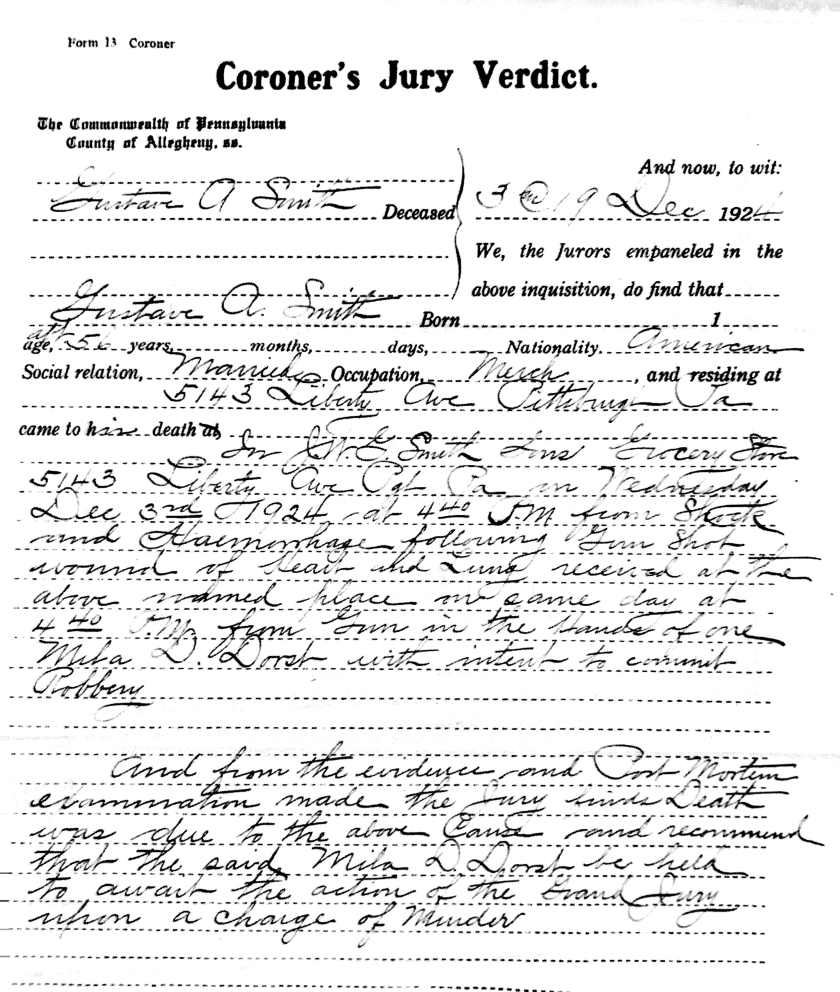 Form 13 Coroner
Coroner's Jury Verdict.
The Commonwealth of Pennsylvania
County of Allegheny, ss.
And now, to wit:
Gustave A Smith Deceased
3 & 19 Dec 1924
We, the Jurors empaneled in the
above inquisition, do find that
Gustave A. Smith Born 1
age, 56 years, months, days, Nationality. American
Social relation, Married Occupation, Merch , and residing at
5143 Liberty Ave Pittsburgh Pa
came to his death
In J.W.G. Smith Sons Grocery Store
5143 Liberty Ave Pgh Pa on Wednesday
Dec 3rd 1924 at 4 40 PM from Shock
and Haemorrhage following Gun Shot
wound of Heart and Lung received at the
above named place on same day at
4 40 P.M. from Gun in the Hands of one
Mila D. Dorst with intent to commit
Robbery
And from the evidence and Post Mortem
examination made the Jury finds Death
was due to the above Cause and recommend
that the said Mila D. Dorst be held
to await the action of the Grand Jury
upon a charge of Murder